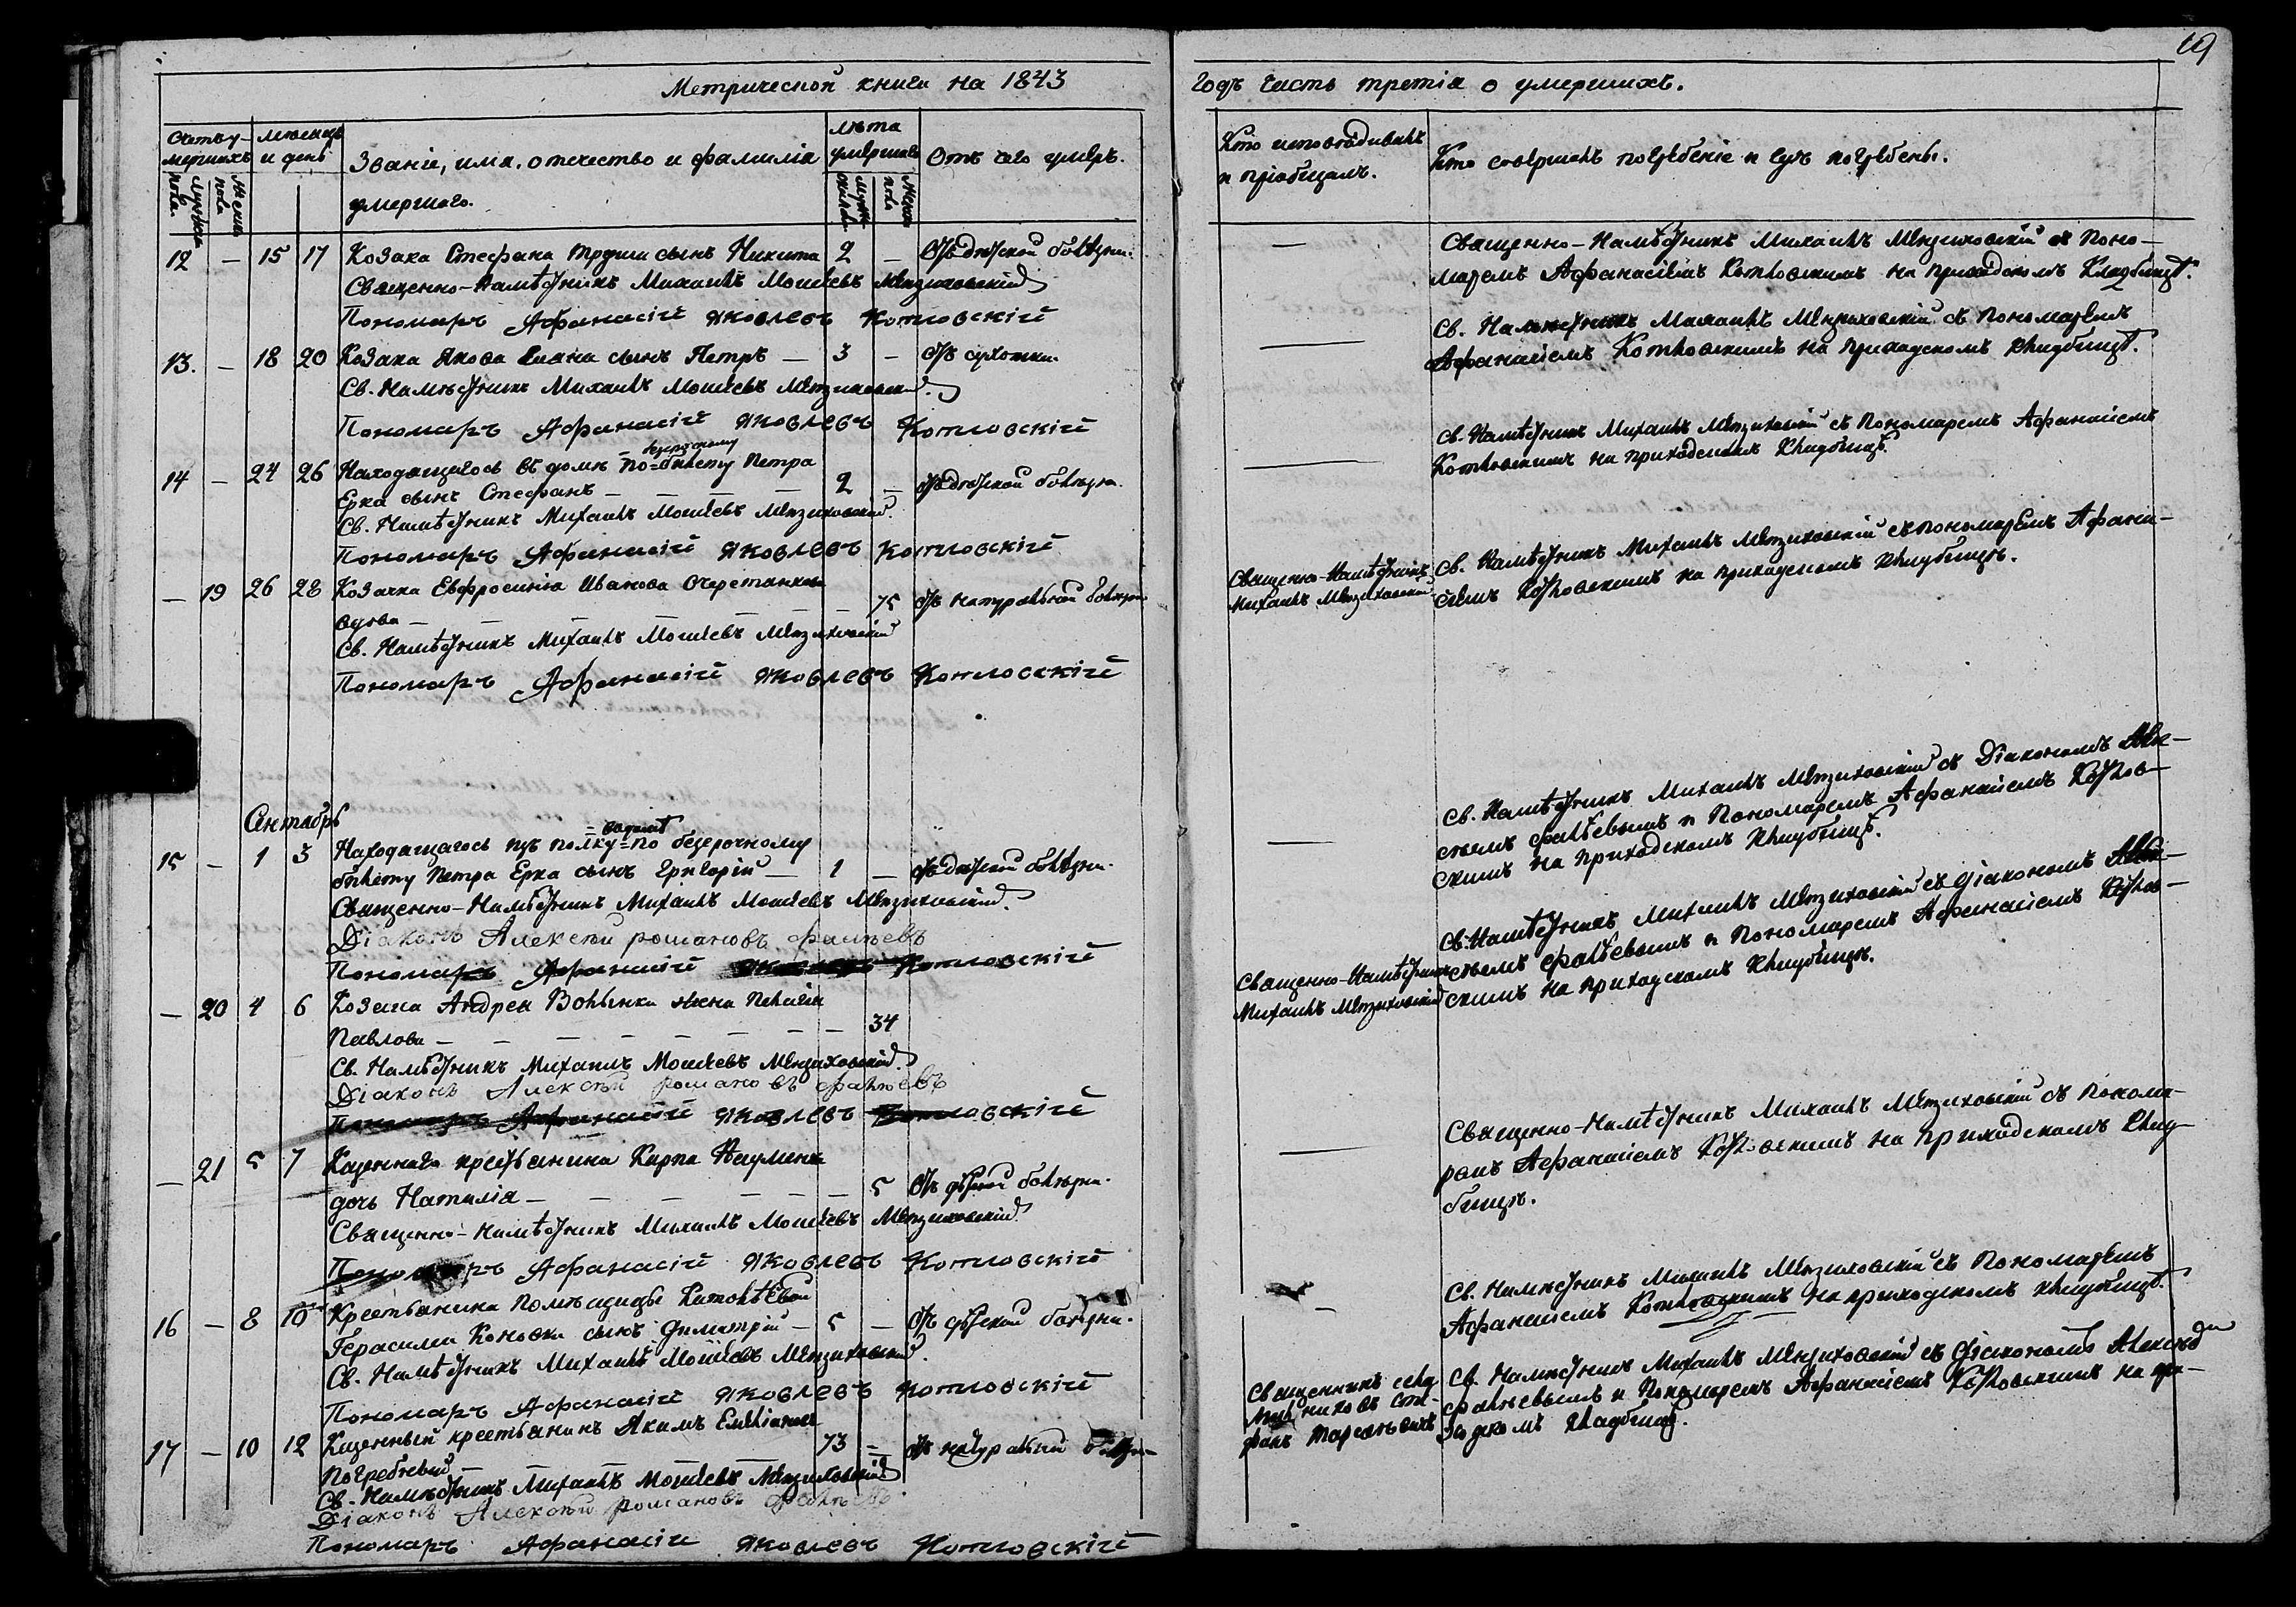 19
Метрической книги на 1843
годъ часть третія о умершихъ.
Счетъ у-
мершихъ
Мужеска
пола
Женск
пола
мѣсяцъ
и день
Званіе, имя, отчество и фамилія
умершаго.
лѣта
умершаго
Мужеск
пола
Женск
пола
Отъ чего умеръ.
Кто исповѣдывалъ
и пріобщалъ.
Кто совершалъ погребеніе и гдѣ погребены.
12 — 15 17 Козака Стефана сынъ Никита 2 — Отъ дѣтской болѣзни.
Священно-Намѣстникъ Михаилъ Моисеевъ Мензиховскій
Пономаръ Афанасій Яковлевъ Котловскій
— Священно-Намѣстникъ Михаилъ Мензиховскій съ Поно-
маремъ Афанасіемъ Котловскимъ на приходскомъ Кладбищѣ.
13. — 18 20 Козака Якова сынъ Петръ — 3 — Отъ сухотки
Св. Намѣстникъ Михаилъ Моисеевъ Мензиховскій
Пономаръ Афанасій Яковлевъ Котловскій
— Св. Намѣстникъ Михаилъ Мензиховскій съ Пономаремъ
Афанасіемъ Котловскимъ на приходскомъ кладбищѣ.
безсрочному
14 — 24 26 Находящагось въ домѣ по = билету Петра
Ерка сынъ Стефанъ — — — 2 — Отъ дѣтской болѣзни.
Св. Намѣстникъ Михаилъ Моисеевъ Мензиховскій.
Пономаръ Афанасій Яковлевъ Котловскій
— Св. Намѣстникъ Михаилъ Мензиховскій съ Пономаремъ Афанасіемъ
Котловскимъ на приходскомъ кладбищѣ.
— 19 26 28 Козачка Евфросинія Иванова
вдова — — — — — 75 Отъ натуральной болѣзни
Св. Намѣстникъ Михаилъ Моисеевъ Мензиховскій
Пономаръ Афанасій Яковлевъ Котловскій
Священно-Намѣстникъ
Михаилъ Мензиховскій
Св. Намѣстникъ Михаилъ Мензиховскій съ пономаремъ Афана-
сіемъ Котловскимъ на приходскомъ кладбищѣ.
Сентябрь
15 — 1 3 Находящагось изъ полку = по безсрочному
билету Петра Ерка сынъ Григорій — 1 — Отъ дѣтской болѣзни.
Священно-Намѣстникъ Михаилъ Моисеевъ Мензиховскій.
Діаконъ Алексѣй романовъ фалѣевъ
Пономаръ Афанасій Яковлевъ Котловскій
— Св. Намѣстникъ Михаилъ Мензиховскій съ Діакономъ Алек-
сѣемъ фалѣевымъ и Пономаремъ Афанасіемъ Котлов-
скимъ на приходскомъ кладбищѣ.
— 20 4 6 Козака Андрея Волынки жена Пелагія
Павлова — — — — — — 34
Св. Намѣстникъ Михаилъ Моисеевъ Мензиховскій.
Діаконъ Алексѣй романовъ фалѣевъ
Пономаръ Афанасій Яковлевъ Котловскій
Священно-Намѣстникъ
Михаилъ Мензиховскій
Св. Намѣстникъ Михаилъ Мензиховскій съ діакономъ
сѣемъ фалѣевымъ и Пономаремъ Афанасіемъ Котлов-
скимъ на приходскомъ кладбищѣ.
— 21 5 7 Казеннаго крестьянина Карпа Науменка
дочь Наталія — — — — — 5 Отъ дѣтской болѣзни.
Священно-Намѣстникъ Михаилъ Моисеевъ Мензиховскій.
Пономаръ Афанасій Яковлевъ Котловскій
— Священно-Намѣстникъ Михаилъ Мензиховскій съ Понома-
ромъ Афанасіемъ Котловскимъ на приходскомъ клад-
бищѣ.
16 — 8 10 Крестьянина помѣщицы
Герасима Коновки сынъ Димитрій — 5 — Отъ дѣтской болѣзни.
Св. Намѣстникъ Михаилъ Моисеевъ Мензиховскій.
Пономаръ Афанасій Яковлевъ Котловскій
— Св. Намѣстникъ Михаилъ Мензиховскій съ Пономаремъ
Афанасіемъ Котловскимъ на приходскомъ кладбищѣ.
17 — 10 12 Казенный крестьянинъ Акимъ Емліановъ
Погребный — 73 — Отъ натуральной болѣзни
Св. Намѣстникъ Михаилъ Моисеевъ Мензиховскій
Діаконъ Алексѣй романовъ фалѣевъ
Пономаръ Афанасій Яковлевъ Котловскій
Священникъ села
Сте-
фанъ
Св. Намѣстникъ Михаилъ Мензиховскій съ діакономъ Алексѣемъ
фалѣевымъ и Пономаремъ Афанасіемъ Котловскимъ на при-
ходскомъ кладбищѣ.